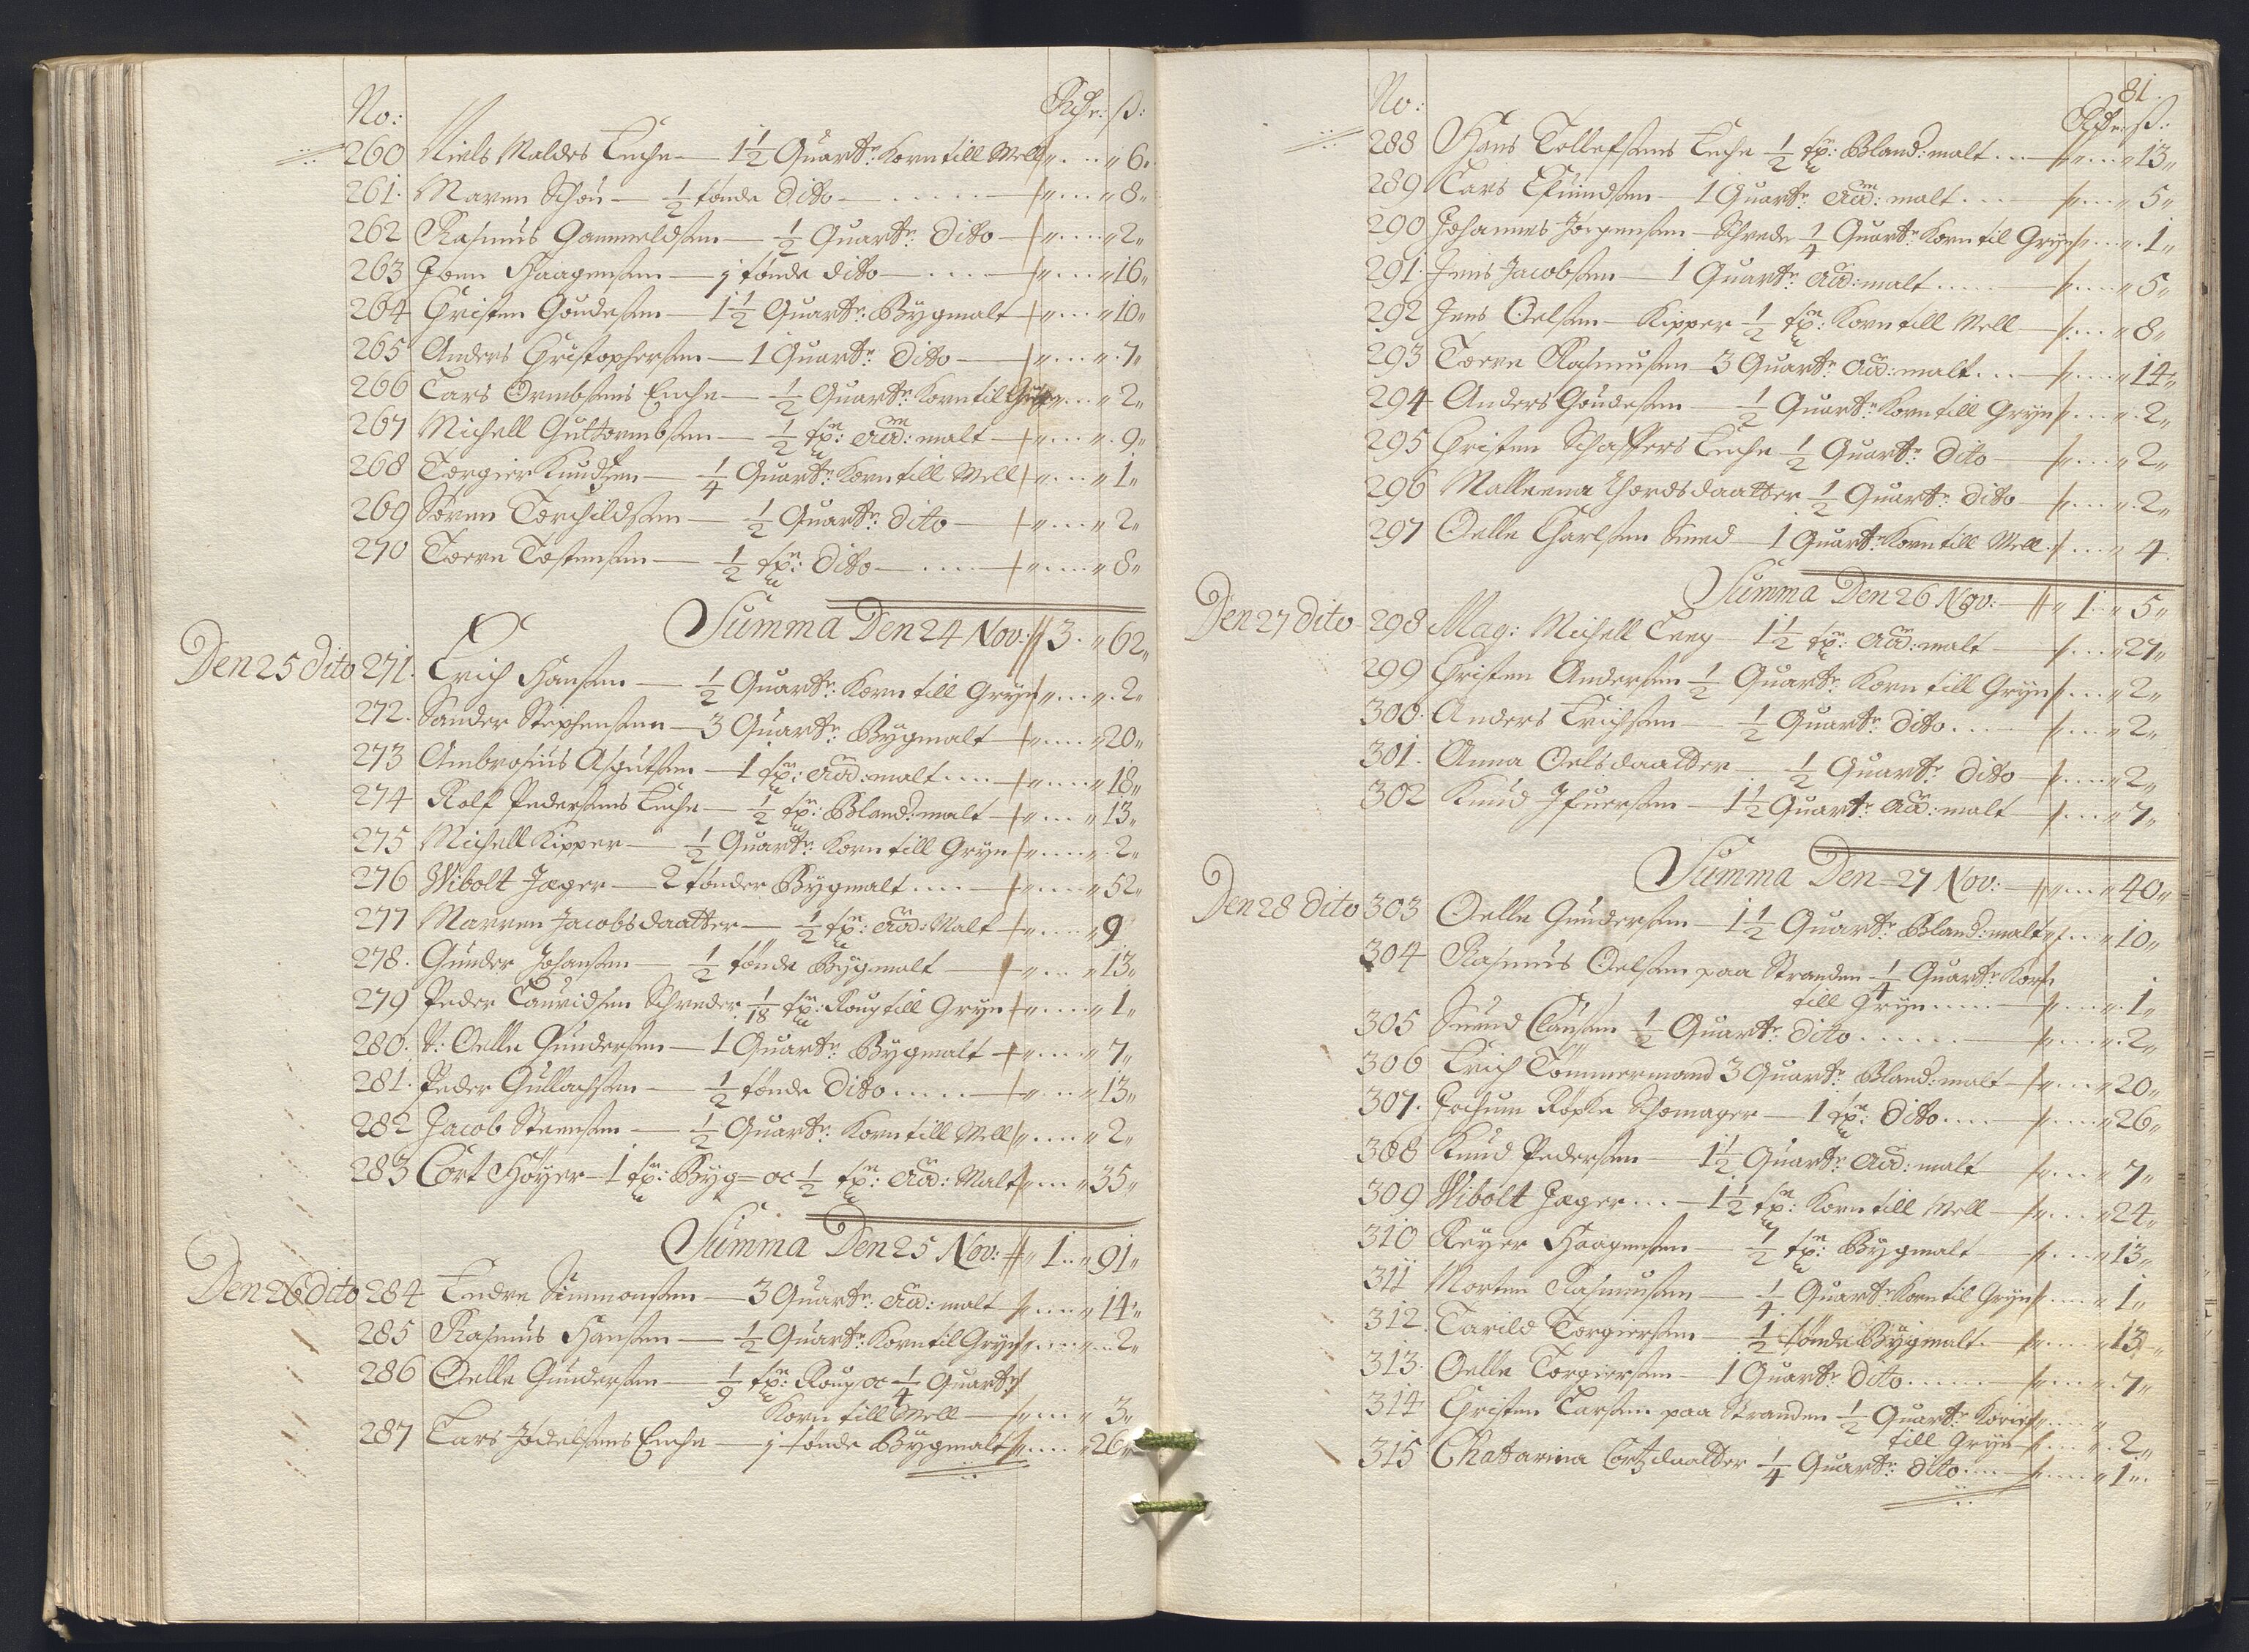 No: Rdr: ß:
260 Niels Valdes Enche — 1½ Quartr: Korn till Mell „....„ 6„
261. Maren Schou — ½ tønde dito — ..... „....„ 8„
262 Rasmus Gammeldsen — ½ Quartr: dito — „....„ 2„
263 Joen Haagensen — j tønde dito — .... „....„ 16„
264 Christen Goudesen — 1½ Quartr: Bÿgmalt „....„ 10„
265 Anders Christophersen — 1 Quartr: dito — „....„ 7„
266 Lars Ormbsens Enche — ½ Quartr: Korn til Grÿn „....„ 2„
267 Michell Guttormbsen — ½ tn: Aud: malt „....„ 9„
268 Torgier Knudsen — ¼ Quartr: Korn till Mell „....„ 1„
269 Søren Torchildsen — ½ Quartr: dito — „....„ 2„
270 Torre Tostensen — ½ tn: dito — .... „....„ 8„
Summa Den 24 Nov: 3. „ 62„
Den 25 dito 271. Erich Hansen — ½ Quartr: Korn till Grÿn „....„ 2„
272. Sander Stephensen — 3 Quartr: Bÿgmalt „....„ 20„
273 Ambrosius Asgutsen — 1 tn: Aud: malt .... „....„ 18„
274 Rolf Pedersens Enche — ½ tn: Bland: malt „....„ 13„
275 Michell Kipper — ½ Quartr: Korn till Grÿn „....„ 2„
276 Wibolt Jæger — 2 tønder Bÿgmalt .... „....„ 52„
277 Marren Jacobsdaatter — ½ tn: Aud: Malt „....„ 9
278. Gunder Johansen — ½ tønde Bÿgmalt — „....„ 13„
279 Peder Lauridsen Schreder 1/18 tn: Roug till Grÿn „....„ 1„
280. S: Oelle Gundersen — 1 Quartr: Bÿgmalt „....„ 7„
281. Peder Gullachsen — ½ tønde dito ..... „....„ 13„
282 Jacob Steensen — ½ Quartr: Korn till Mell „....„ 2„
283 Cort Høÿer — 1 tn: Bÿg= oc ½ tn: Aud: Malt „....„ 35„
Summa Den 25 Nov: „ 1..„ 91„
Den 26 dito 284 Endre Simmonsen — 3 Quartr: Aud: malt „....„ 14„
285 Rasmus Hansen — ½ Quartr: Korn til Grÿn „....„ 2„
286 Oelle Gundersen — 1/9 tn: Roug oc ¼ Quartr:
Korn till Mell — „....„ 3„
287 Lars Joelsens Enche — j tønde Bÿgmalt „....„ 26„
81.
No: Rdr: ß:
288 Hans Tollefsens Enche ½ tn: Bland: malt ... „....„ 13„
289 Lars Efuindsen — 1 Quartr: Aud: malt .... „....„ 5„
290 Johannes Jørgensen Schrede ¼ Quartr: Korn til Grÿn „...„ 1„
291. Jens Jacobsen — 1 Quartr: Aud: malt ..... „....„ 5„
292 Jens Oelsen Kipper ½ tn: Korn till Mell — „....„ 8„
293 Torre Rasmussen 3 Quartr: Aud: malt ... „....„ 14„
294 Anders Goudesen — ½ Quartr: Korn till Grÿn „....„ 2„
295 Christen Schaffers Enche ½ Quartr: dito — „....„ 2„
296 Malleena Thordsdaatter ½ Quartr: dito — „....„ 2„
297 Oelle Charlsen Smed — 1 Quartr: Korn till Mell „...„ 4
Summa Den 26 Nov: — „ 1..„ 5„
Den 27 dito 298 Mag: Michell Leeg 1½ tn: Aud: malt — „....„ 27„
299 Christen Andersen ½ Quartr: Korn till Grÿn „....„ 2„
300. Anders Erichsen — ½ Quartr: dito .... „....„ 2„
301. Anna Oelsdaatter — ½ Quartr: dito — „....„ 2„
302 Knud Ifuersen — 1½ Quartr: Aud: malt — „....„ 7„
Summa Den 27 Nov: — „....„ 40„
Den 28 dito 303 Oelle Gundersen — 1½ Quartr: Bland: malt „....„ 10„
304 Rasmus Oelsen paa Stranden ¼ Quartr: Korn
till Grÿn ..... „....„ 1„
305 Suend Clausen ½ Quartr: dito ...... „....„ 2„
306 Erich Tömmermand 3 Quartr: Bland: malt „....„ 20„
307. Jochum Røpke Schomager — 1 tn: dito .... „....„ 26„
308 Knud Pedersen — 1½ Quartr: Aud: malt — „....„ 7„
309 Wibolt Jæger ... — 1½ tn: Korn till Mell — „....„ 24„
310 Reÿer Haagensen — ½ tn: Bÿgmalt — „....„ 13„
311 Morten Rasmussen — ¼ Quartr: Korn til Grÿn „....„ 1„
312. Tarild Torgiersen — ½ tønde Bÿgmalt — „....„ 13„
313. Oelle Torgiersen — 1 Quartr: dito ...... „....„ 7„
314 Christen Larsen paa Stranden ½ Quartr: Korn „....„
till Grÿn „....„ 2„
315 Chatarina Cortzdaatter ¼ Quartr: dito .... „....„ 1„